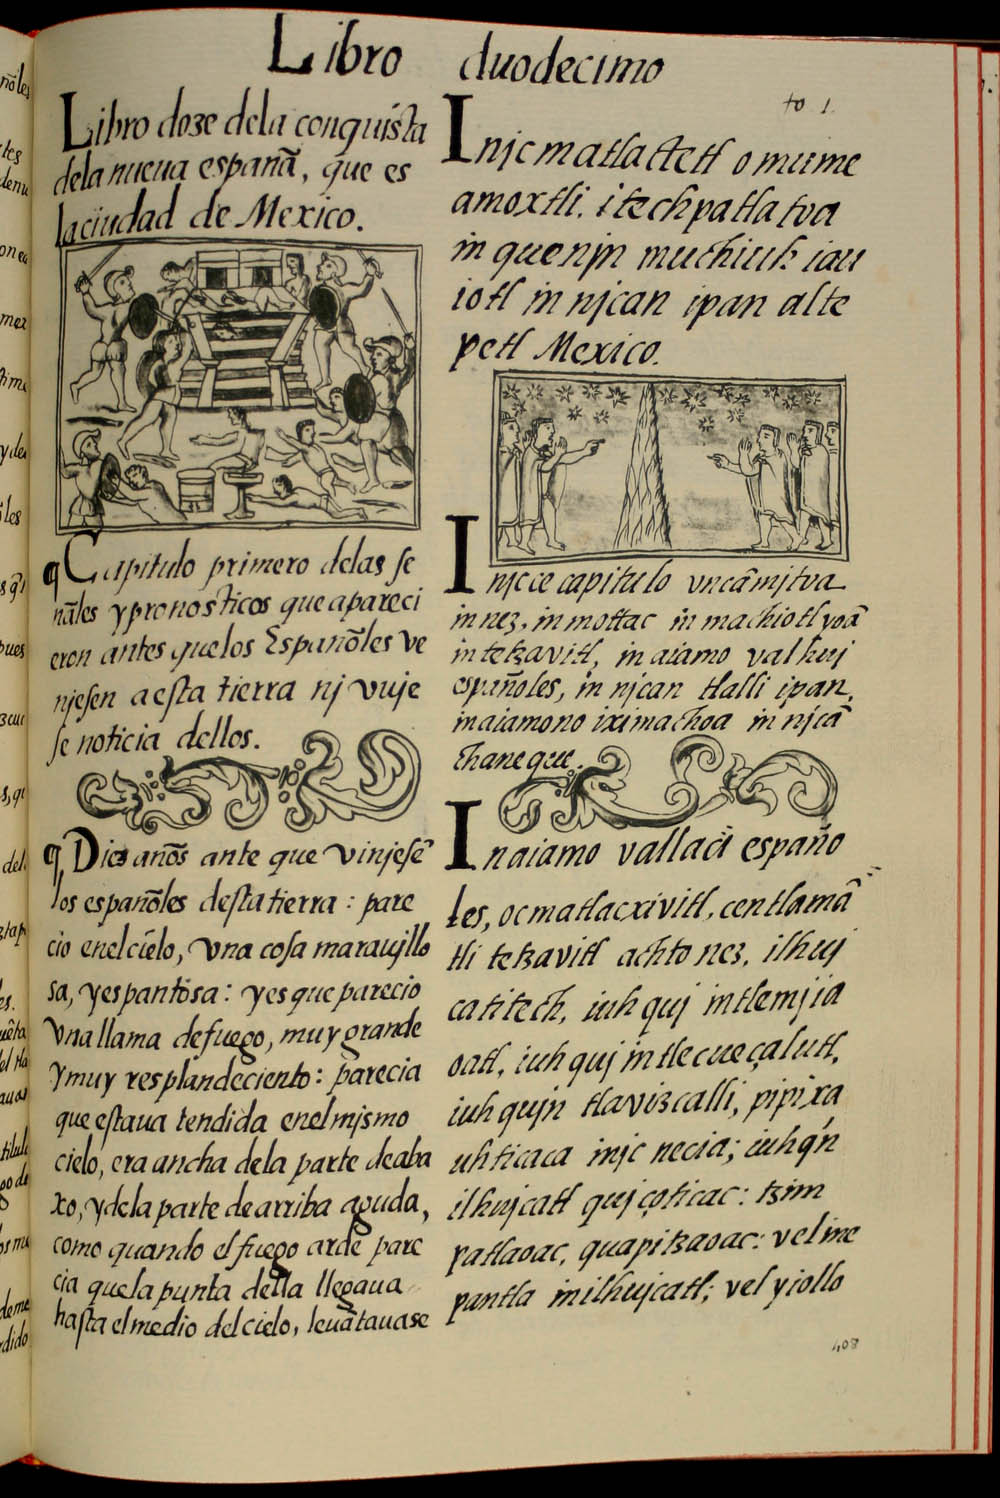 Libro duodecimo
Libro doze dela conquista
dela nueua españa, que es
la ciudad de Mexico.
¶ Capitulo primero delas se
ñales y pronosticos que apareci
eron antes quelos Españoles ve
njesen a esta tierra nj vuje
se noticia dellos.
¶ Diez años ante que vinjesẽ
los españoles desta tierra: pare
cio enel cielo, vna cosa marauillo
sa, y espantosa: y es que parecio
vna llama de fuego, muy grande
y muy resplandeciento: parecia
que estaua tendida enel mismo
cielo, era ancha dela parte de aba
xo, y dela parte de arriba aguda,
como quando el fuego arde pare
cia quela punta della llegaua
hasta el medio del cielo, leuãtauase
fo 1.
Injc matlactetl omume
amoxtli. itechpa tlatva
in quenjn muchiuh iau
iotl in njcan ipan alte
petl Mexico.
Injc ce capitulo vncã mjtva
in nez, in mottac in machiotl yoã
in tetzavitl, in aiamo valhuj
españoles, in njcan tlalli ipan,
in aiamono iximachoa in njcã
chaneque.
In aiamo vallaci españo
les, oc matlacxivitl, centlamã
tli tetzavitl achto nez, ilhuj
catitech, iuhquj in tlemjia
oatl, iuhquj in tlecueçalutl,
iuhqujn tlavizcalli, pipixa
uhticaca injc necia; iuhq́n
ilhujcatl qujçoticac: tzim
patlaoac, quapitzaoac: vel ine
pantla in ilhujcatl; vel yiollo
408